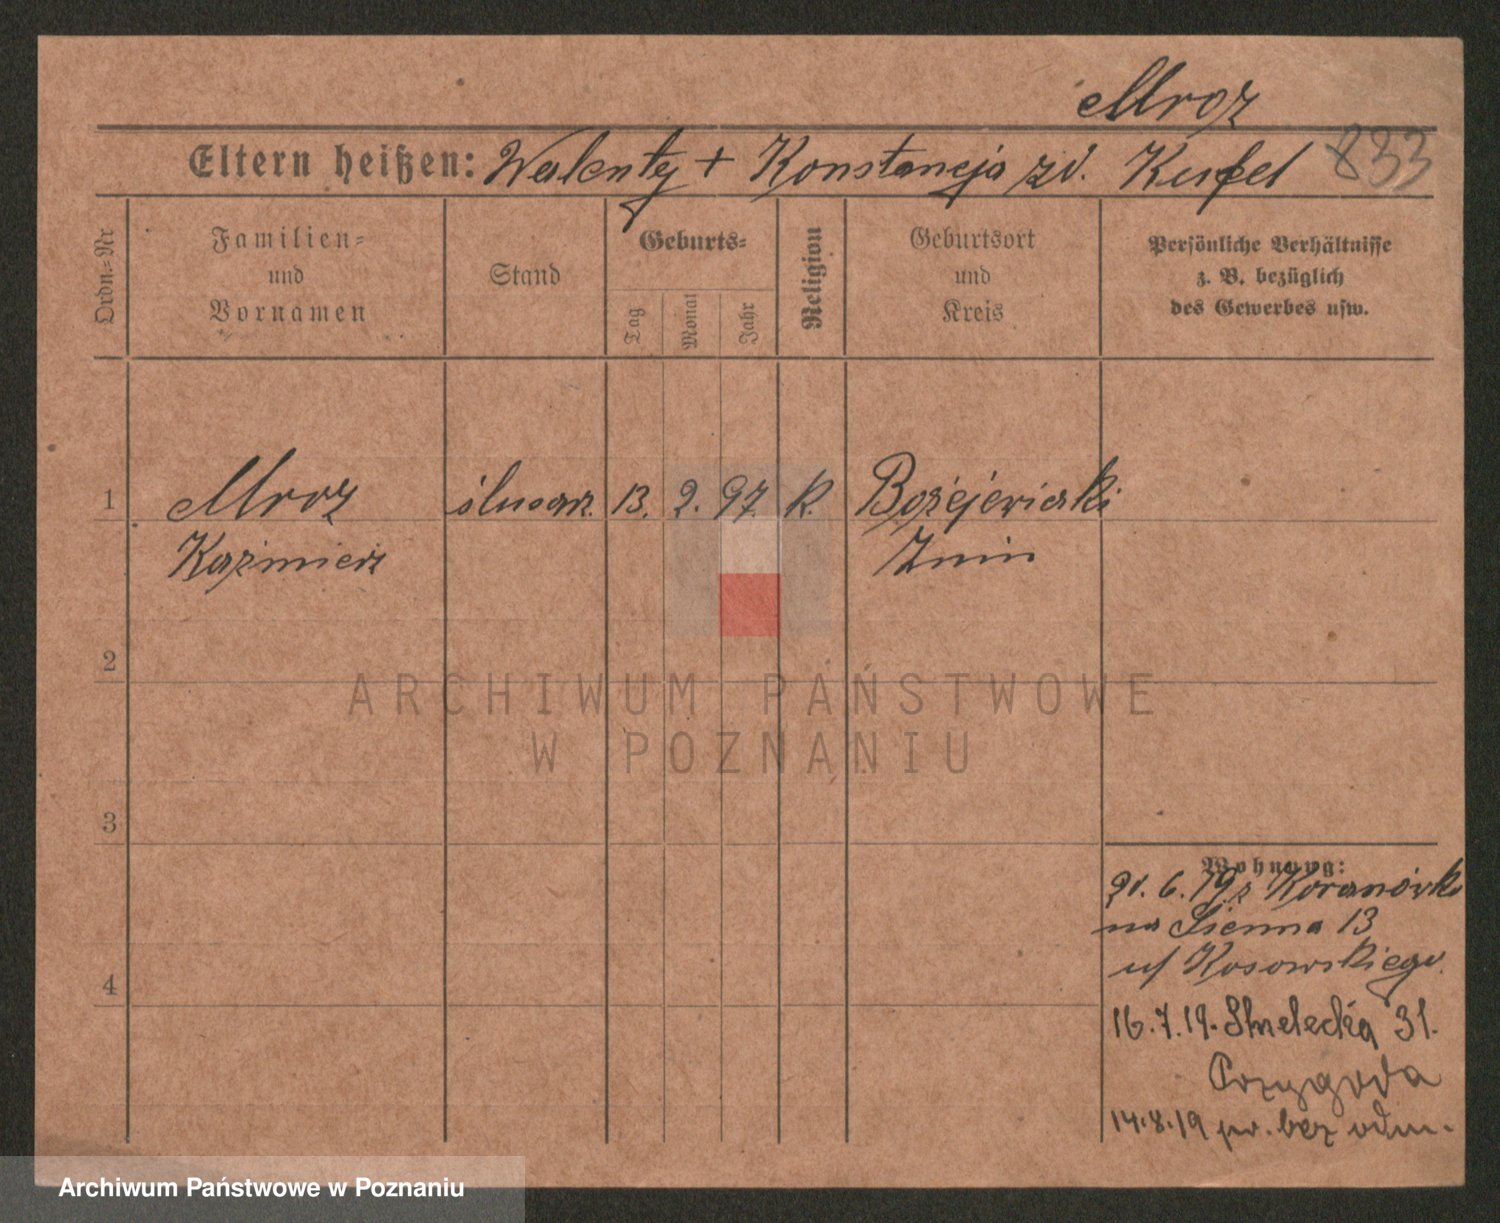 Mroz
Eltern heißen: Walenty + Konstancja zd. Kurfel 833
Ordn.=Nr
Familien=
und
Vornamen
Stand
Geburts=
Tag
Monat
Jahr
Religion
Geburtsort
und
Kreis
Persönliche Verhältnisse
z. B. bezüglich
des Gewerbes usw.
1 Mroz ślusarz. 13. 2. 97. k. Bożejewiczki
Kaźmierz Znin
2
ARCHIWUM PAŃSTWOWE
W POZNANIU
3
Wohnung:
21. 6. 19 z Koranówko
na Sienna 13
u/ Kosowskiego.
4
16.7.19. Strzelecka 31.
Przygoda
14.8.19 pw. bez odm.
Archiwum Państwowe w Poznaniu